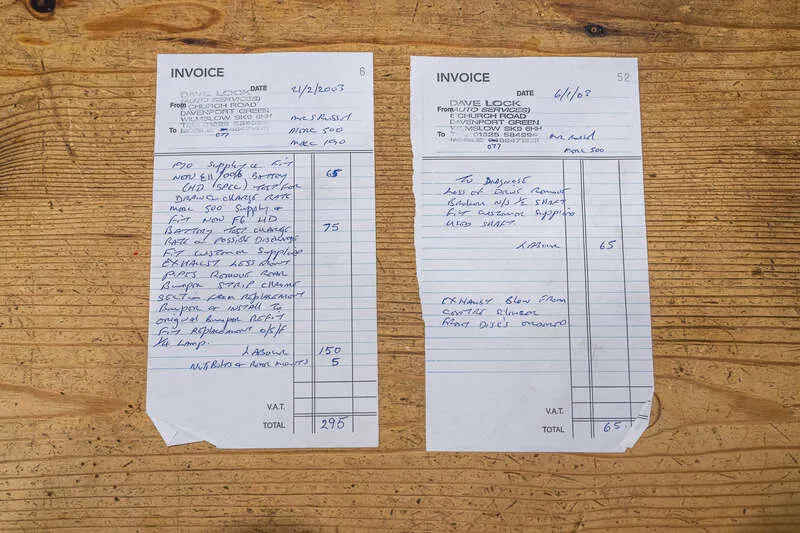 INVOICE 6
DATE 21/2/2003
DAVE LOCK
(AUTO SERVICES)
From CHURCH ROAD
DAVENPORT GREEN
WILMSLOW SK9 6HH
To
077
Mr S Russel
MERC 500
MERC 190
190 Supply & Fit
NEW BATTERY 65
(HD SPEC) TEST FOR
DRAW & CHARGE RATE
MERC 500 Supply &
Fit NEW HD
BATTERY TEST CHARGE 75
RATE & POSSIBLE DISCHARGE
Fit CUSTOMER SUPPLIED
EXHAUST LESS FRONT
PIPES REMOVE REAR
BUMPER STRIP CHROME
SECTION FROM REPLACEMENT
BUMPER & INSTALL TO
ORIGINAL BUMPER REFIT
Fit REPLACEMENT O/S/F
LAMP.
LABOUR 150
NUTS BOLTS & REAR MOUNTS 5
V.A.T.
TOTAL 295
INVOICE 52
DATE 6/1/03
DAVE LOCK
From (AUTO SERVICES)
CHURCH ROAD
DAVENPORT GREEN
WILMSLOW SK9 6HH
To 01625
077
Mr Russel
MERC 500
To DIAGNOSE
LOSS OF DRIVE REMOVE
BROKEN N/S 1/2 SHAFT
FIT CUSTOMER SUPPLIED
USED SHAFT.
LABOUR 65
EXHAUST BLOW FROM
CENTRE SILENCER
FRONT DISCS
V.A.T.
TOTAL 65.